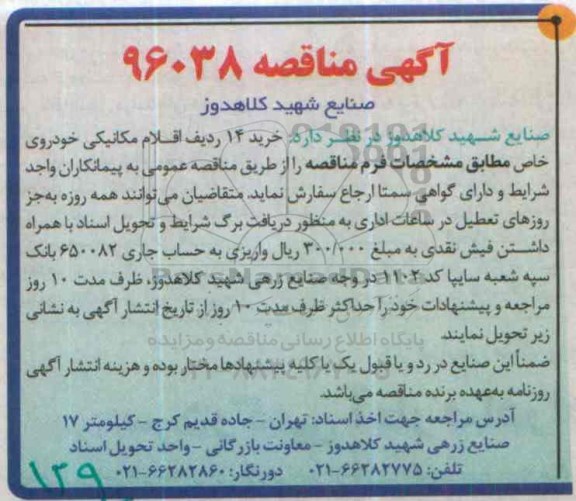 آگهی مناقصه ۹۶۰۳۸
صنایع شهید کلاهدوز
صنایع شهید کلاهدوز در نظر دارد، خرید ۱۴ ردیف اقلام مکانیکی خودروی
خاص مطابق مشخصات فرم مناقصه را از طریق مناقصه عمومی به پیمانکاران واجد
شرایط و دارای گواهی سمتا ارجاع سفارش نماید. متقاضیان می‌توانند همه روزه به‌جز
روزهای تعطیل در ساعات اداری به منظور دریافت برگ شرایط و تحویل اسناد با همراه
داشتن فیش نقدی به مبلغ ۳۰۰/۰۰۰ ریال واریزی به حساب جاری ۶۵۰۰۸۲ بانک
سپه شعبه سایپا کد ۱۱۰۲ در وجه صنایع زرهی شهید کلاهدوز، ظرف مدت ۱۰ روز
مراجعه و پیشنهادات خود را حداکثر ظرف مدت ۱۰ روز از تاریخ انتشار آگهی به نشانی
زیر تحویل نمایند.
پایگاه اطلاع رسانی مناقصه و مزایده
ضمناً این صنایع در رد و یا قبول یک یا کلیه پیشنهادها مختار بوده و هزینه انتشار آگهی
روزنامه به‌عهده برنده مناقصه می‌باشد.
آدرس مراجعه جهت اخذ اسناد: تهران - جاده قدیم کرج - کیلومتر ۱۷
صنایع زرهی شهید کلاهدوز - معاونت بازرگانی - واحد تحویل اسناد
تلفن: ۶۶۲۸۲۷۷۵-۰۲۱ دورنگار: ۶۶۲۸۲۸۶۰-۰۲۱
۱۳۹